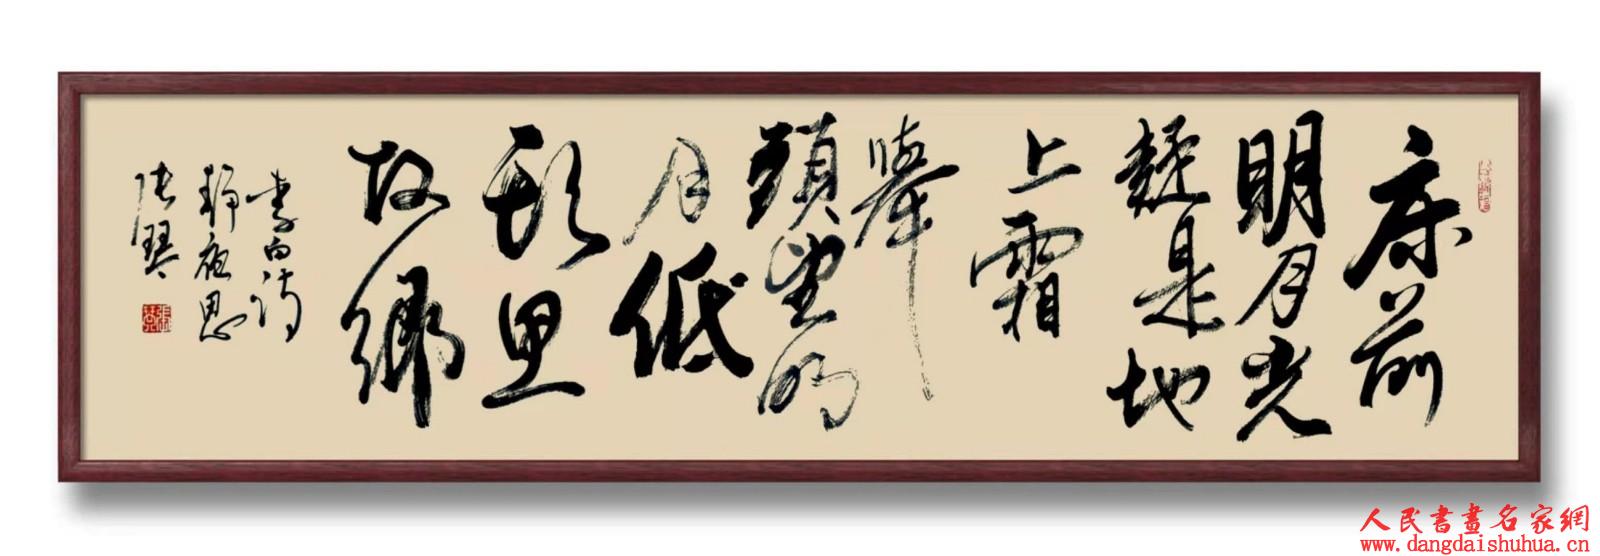 床前
明月光
疑是地
上霜
舉
頭望明
月低
頭思
故鄉
李白詩
静夜思
张琴
人民書畫名家網
www.dangdaishuhua.cn